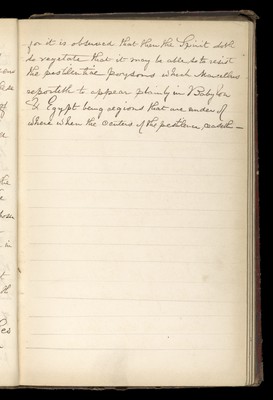 for it is observed that then the Spirit doth
so vegetate that it may be able to resist
the pestilential poysons which Marcellus
reporteth to appear plainly in Babylon
& Egypt being regions that are under
where when the centers of the pestilence, ceaseth —